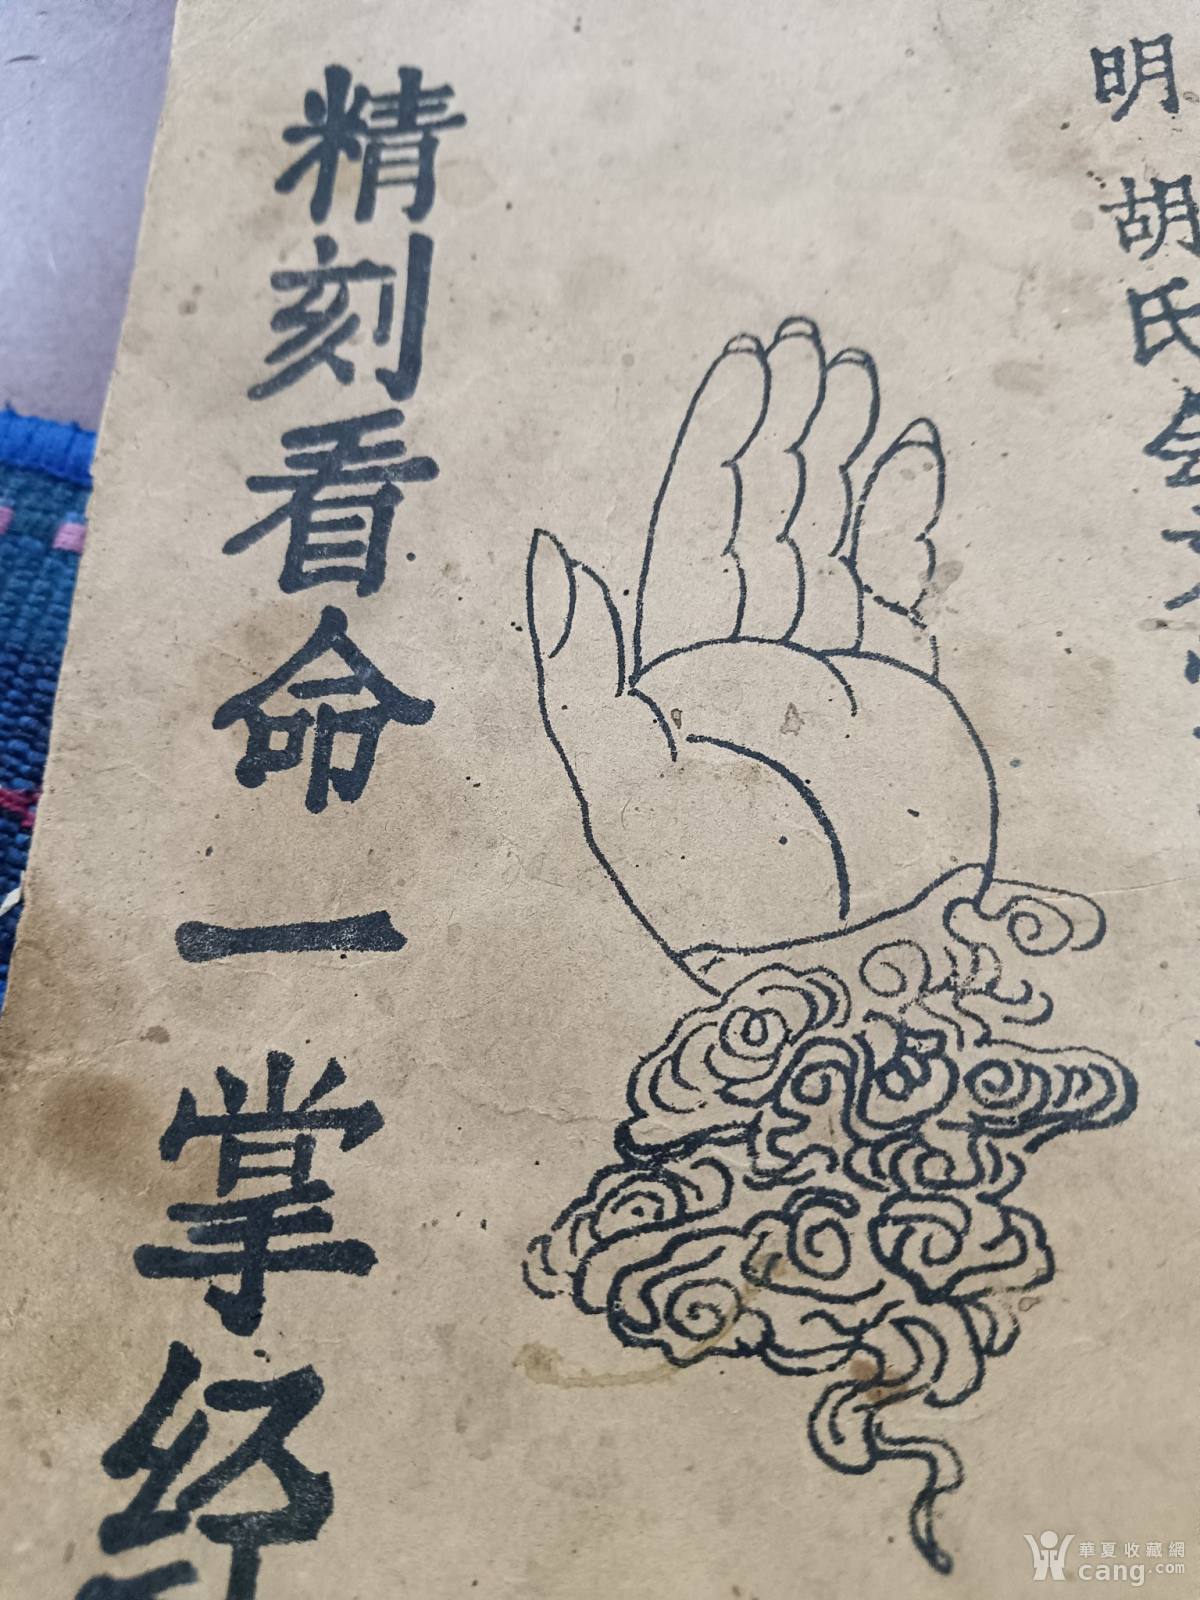 明 胡氏会文
精刻看命一掌经
華夏收藏網
cang.com